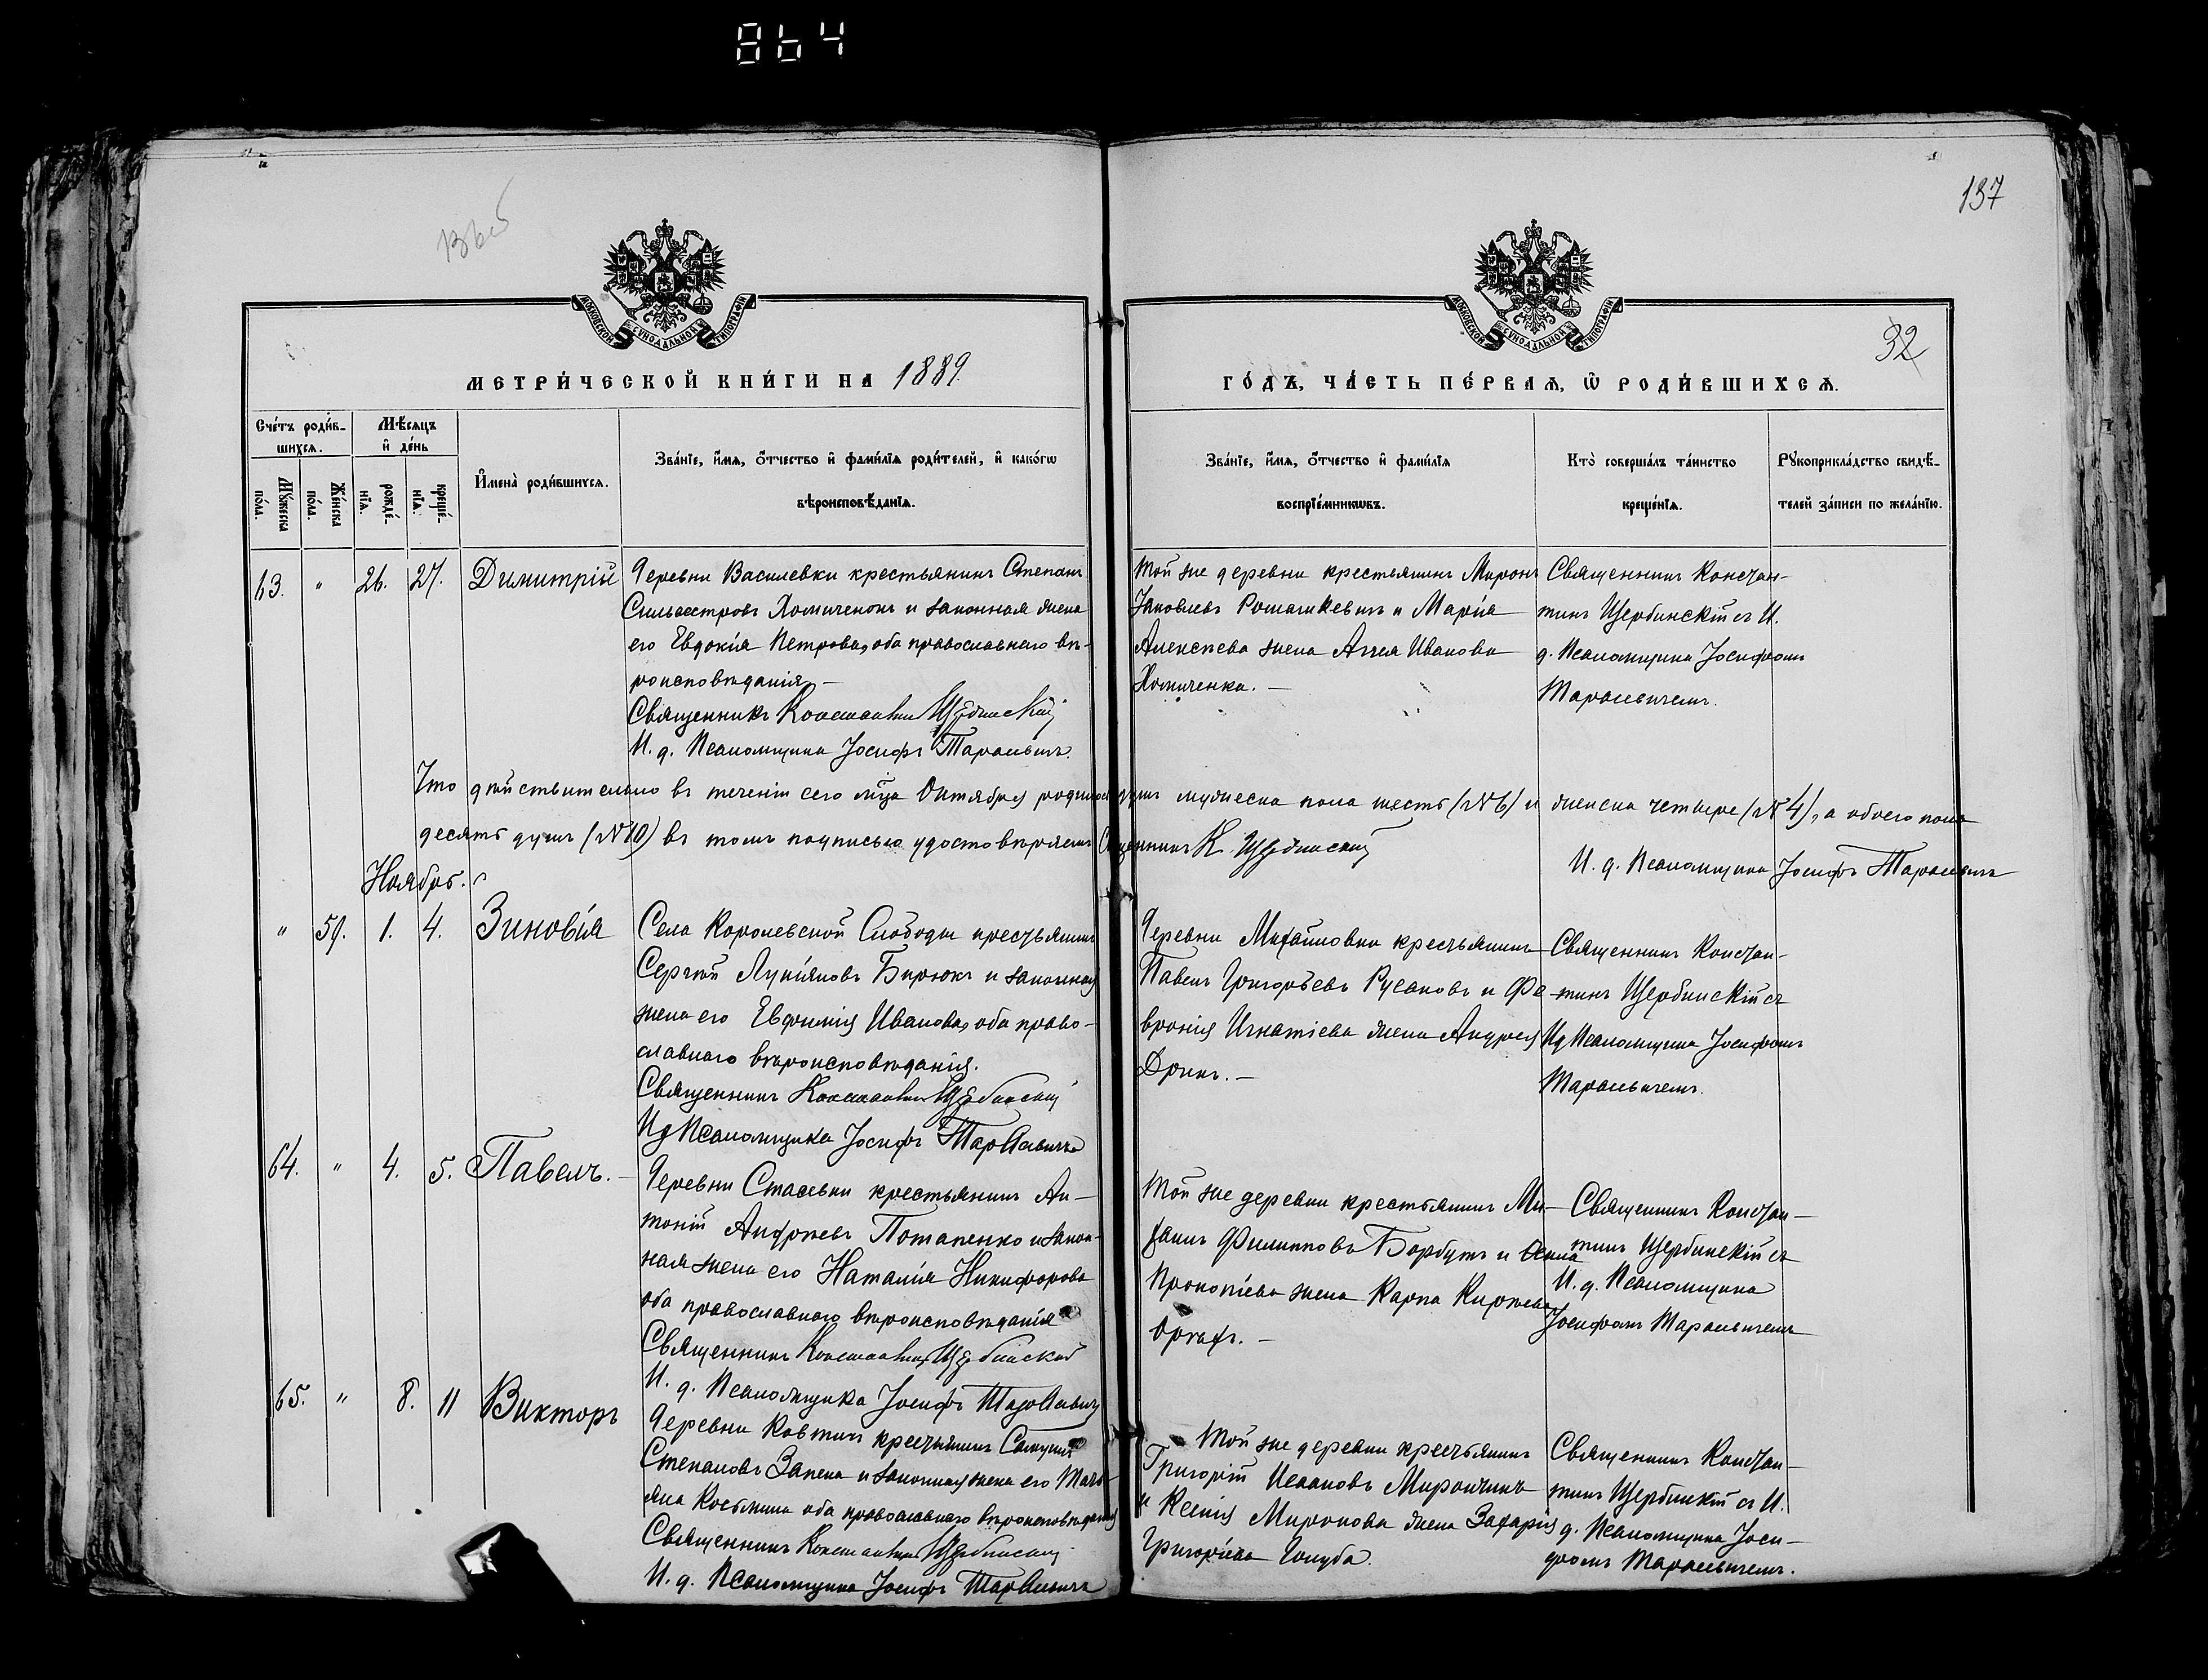 864
137
МОСКОВСКОЙ СѴНОДАЛЬНОЙ ТИПОГРАФІИ
МОСКОВСКОЙ СѴНОДАЛЬНОЙ ТИПОГРАФІИ
32
МЕТРИ́ЧЕСКОЙ КНИ́ГИ НА 1889.
ГО́ДЪ, ЧА́СТЬ ПЕ́РВАѦ, Ѽ РОДИ́ВШИХСѦ.
Сче́тъ роди́в-
шихсѧ.
Мꙋжеска
по́ла.
Же́нска
по́ла.
Мѣ́сѧцъ
и҆ де́нь
рожде́-
нїѧ.
креще́-
нїѧ.
И҆мена̀ роди́вшихсѧ.
Зва́нїе, и҆́мѧ, ѻ҆́тчество и҆ фами́лїѧ роди́телей, и҆ како́гѡ
вѣроисповѣ́данїѧ.
Зва́нїе, и҆́мѧ, ѻ҆́тчество и҆ фами́лїѧ
воспрїе́мникѡвъ.
Кто̀ соверша́лъ та́инство
креще́нїѧ.
Рꙋкоприкла́дство свидѣ́-
телей за́писи по жела́нїю.
63. " 26. 27. Димитрій
Деревни Василевки крестьянинъ Степанъ
Сильвестровъ Хомиченокъ и законная жена
его Евдокія Петрова, оба православнаго вѣ-
роисповѣданія. –
Священникъ Константинъ Щербинскій
И. д. Псаломщика Іосифъ Тарасевичъ.
Той же деревни крестьянинъ Миронъ
Яковлевъ Ромашкевичъ и Марія
Алексѣева жена Ивановa
Хомиченка. –
Священникъ Констан-
тинъ Щербинскій съ И.
д. Псаломщика Іосифомъ
Тарасевичемъ.
Что дѣйствительно въ теченіи сего мѣсяца Октября родилось душъ мужеска пола шесть (№ 6) и женска четыре (№ 4), а обоего пола
десять душъ (№ 10) въ томъ подписью удостовѣряемъ Священникъ К. Щербинскій
И. д. Псаломщика Іосифъ Тарасевичъ
Ноябрь.
" 59. 1. 4. Зиновія
Села Королевской Слободы крестьянинъ
Сергѣй Лукіяновъ Бирюкъ и законная
жена его Евфимія Иванова, оба право-
славнаго вѣроисповѣданія.
Священникъ Константинъ Щербинскій
Ид Псаломщика Іосифъ Тарасевичъ
Деревни Михайловки крестьянинъ
Павелъ Григорьевъ Русаковъ и Фе-
вронія Игнатіева жена Андрея
Дрикъ. –
Священникъ Констан-
тинъ Щербинскій съ
Ид Псаломщика Іосифомъ
Тарасевичемъ.
64. " 4. 5. Павелъ. –
Деревни Стасевки крестьянинъ Ан-
тоній Андреевъ Потапенко и закон-
ная жена его Наталія Никифорова
оба православнаго вѣроисповѣданія
Священникъ Константинъ Щербинскій
И. д. Псаломщика Іосифъ Тарасевичъ
Той же деревни крестьянинъ Ми-
хаилъ Филипповъ Борбутъ и
Прокопіева жена Карпа Кирѣева
Орѣхъ. –
Священникъ Констан-
тинъ Щербинскій съ
И. д. Псаломщика
Іосифомъ Тарасевичемъ
65. " 8. 11 Викторъ
Деревни крестьянинъ Самуилъ
Степановъ Запека и законная жена его Тать-
яна Косьмина оба православнаго вѣроисповѣданія
Священникъ Константинъ Щербинскій
И. д. Псаломщика Іосифъ Тарасевичъ
Той же деревни крестьянинъ
Григорій Исааковъ Мирончикъ
и Ксенія Миронова жена Захарія
Григорьева Голуба.
Священникъ Констан-
тинъ Щербинскій съ И.
д. Псаломщика Іоси-
фомъ Тарасевичемъ.